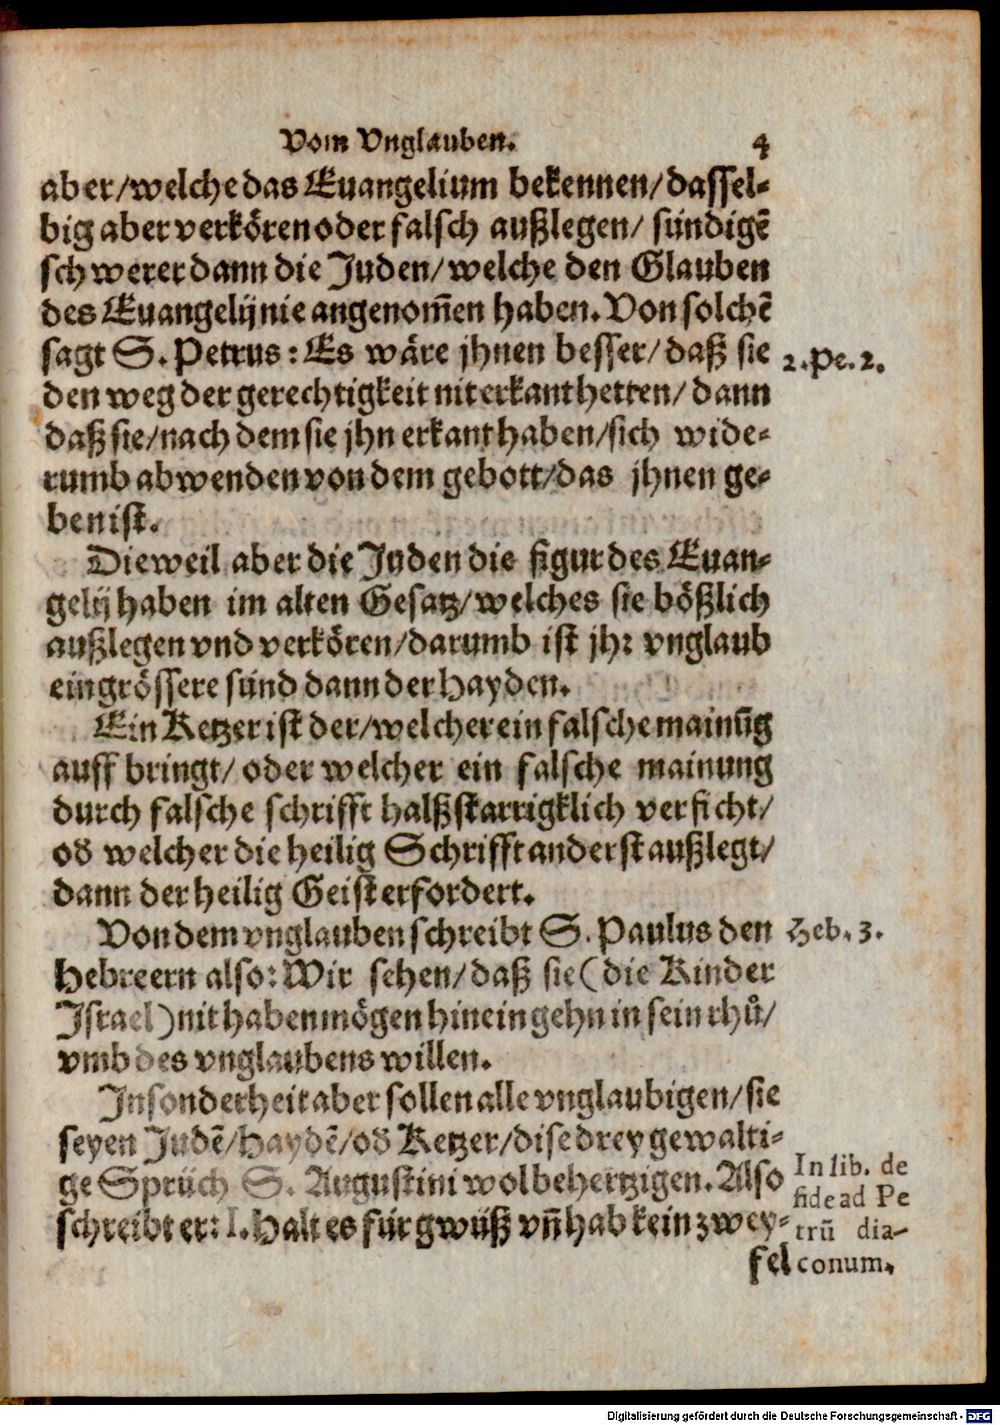 Vom Vnglauben. 4
aber/welche das Euangelium bekennen/dassel-
big aber verkören oder falsch außlegen/ sündigẽ
schwerer dann die Juden/welche den Glauben
des Euangelij nie angenom̃en haben. Von solchẽ
sagt S. Petrus: Es wäre jhnen besser/daß sie
2. Pe. 2.
den weg der gerechtigkeit nit erkant hetten/ dann
daß sie/nach dem sie jhn erkant haben/sich wide-
rumb abwenden von dem gebott/das jhnen ge-
ben ist.
Dieweil aber die Juden die figur des Euan-
gelij haben im alten Gesatz/welches sie bößlich
außlegen vnd verkören/darumb ist jhr vnglaub
ein grössere sünd dann der Hayden.
Ein Ketzer ist der/welcher ein falsche mainũg
auff bringt/ oder welcher ein falsche mainung
durch falsche schrifft halßstarrigklich verficht/
od̃ welcher die heilig Schrifft anderst außlegt/
dann der heilig Geist erfordert.
Von dem vnglauben schreibt S. Paulus den
Heb. 3.
Hebreern also: Wir sehen/daß sie (die Kinder
Israel) nit haben mögen hinein gehn in sein rhů/
vmb des vnglaubens willen.
Insonderheit aber sollen alle vnglaubigen/sie
seyen Judẽ/Haydẽ/od̃ Ketzer/dise drey gewalti-
ge Sprüch S. Augustini wol behertzigen. Also
schreibt er: I. Halt es für gwüß vñ hab kein zwey-
In lib. de
fide ad Pe
trũ dia-
conum.
fel
Digitalisierung gefördert durch die Deutsche Forschungsgemeinschaft - DFG